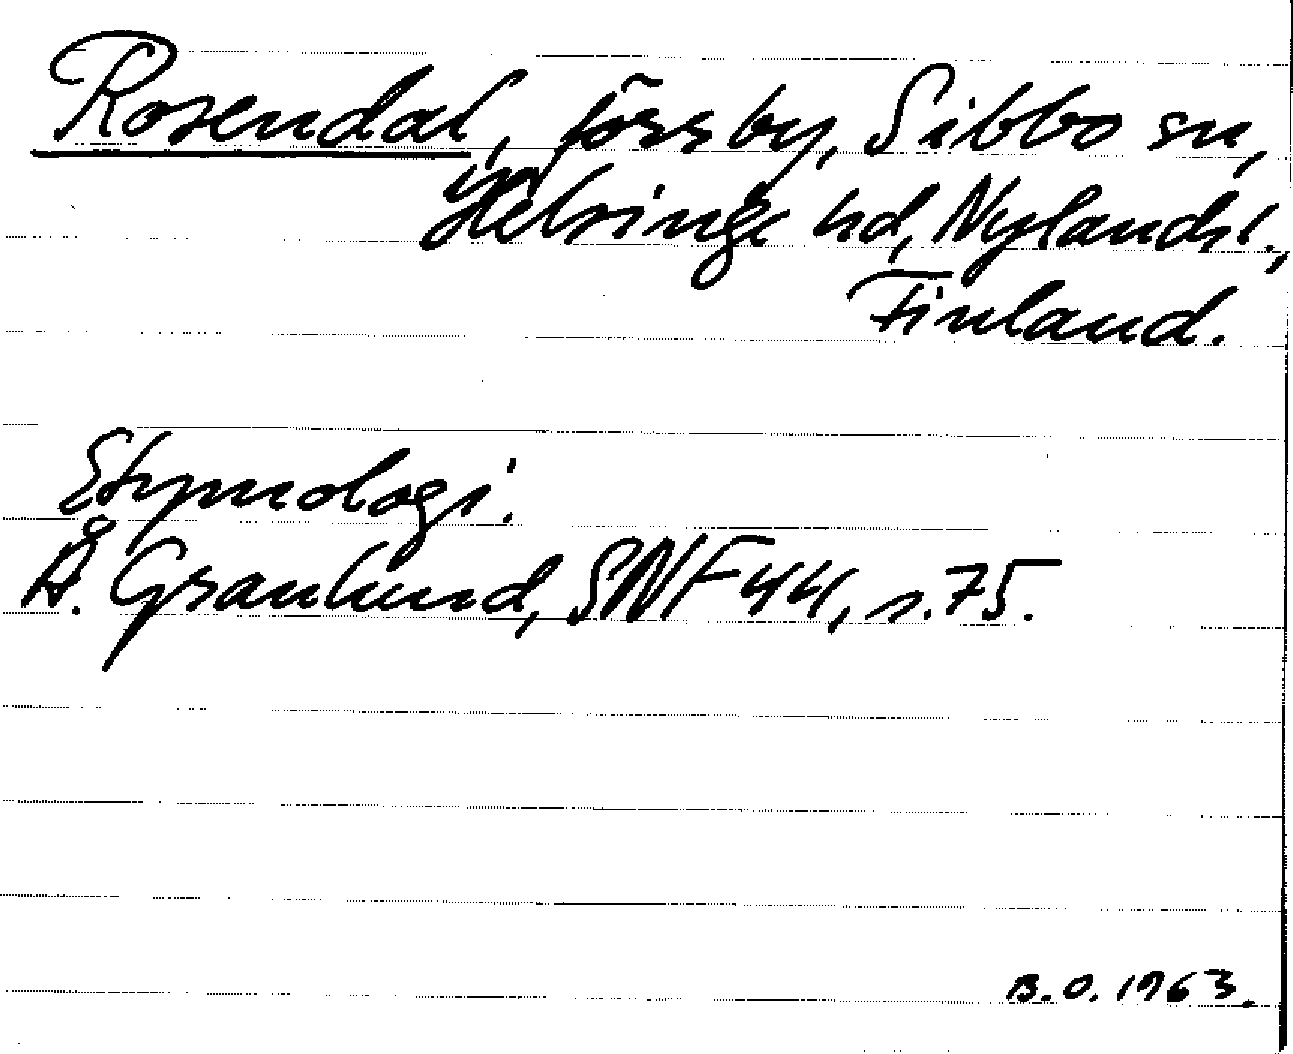 Rosendal, Jössby, Sibbo sn,
Helsinge hd, Nylands l.,
Finland.
Etymologi.
Å. Granlund, SNF 44, s. 75.
B. O. 1963.